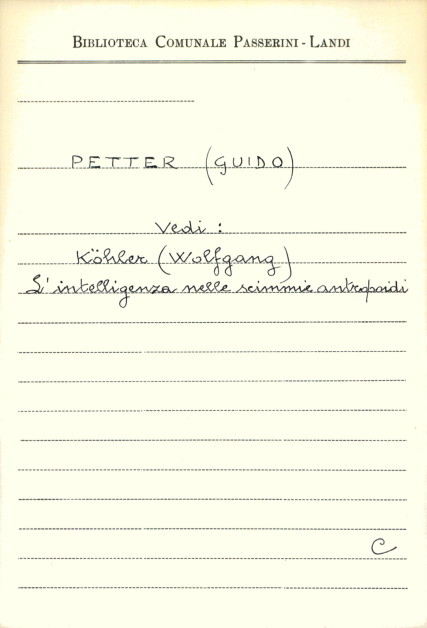 BIBLIOTECA COMUNALE PASSERINI - LANDI
PETTER (GUIDO)
Vedi :
Köhler (Wolfgang)
L'intelligenza nelle scimmie antropoidi
C